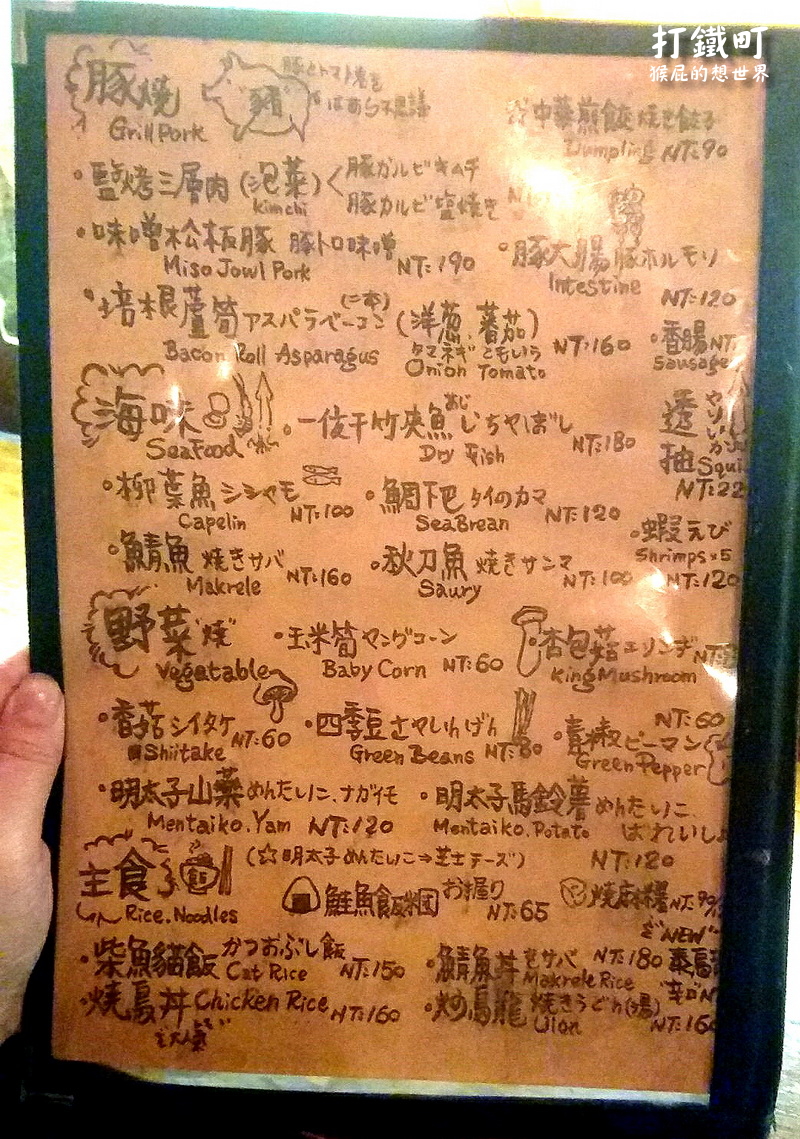 打鐵町
猴屁的想世界
豚燒 豬
Grill Pork
中華煎餃 焼き餃子
Dumpling NT:90
・鹽烤三層肉(泡菜)<豚カルビキムチ
Kimchi 豚カルビ塩焼き
・味噌松板豚 豚トロ味噌
Miso Jowl Pork NT:190
・豚大腸 豚ホルモン
Intestine
NT:120
・培根蘆筍アスパラベーコン(洋葱.蕃茄)
Bacon Roll Asparagus タマネギ
Onion Tomato NT:160
・香腸NT:
Sausage
海味
SeaFood
・一夜干竹夾魚
Dry Fish NT:180
透抽 やりいか
Squi
NT:22
・柳葉魚 シシャモ
Capelin NT:100
・鯛下巴 タイのカマ
SeaBrean NT:120
・蝦えび
Shrimps×5
NT:120
・鯖魚 焼きサバ
Makrele NT:160
・秋刀魚 焼きサンマ
Saury NT:100
野菜"燒"
Vegatable
・玉米筍 ヤングコーン
Baby Corn NT:60
杏包菇エリンギNT:
King Mushroom
NT:60
・香菇シイタケ
Shiitake NT:60
・四季豆さやいんげん
Green Beans NT:80
・青椒ピーマン
Green Pepper
・明太子山藥めんたいこ、ナガイモ
Mentaiko.Yam NT:120
・明太子馬鈴薯めんたいこ、
Mentaiko.Potato ばれいしょ
NT:120
主食
Rice.Noodles
(☆明太子めんたいこ⇒芝士チーズ)
鮭魚飯糰お握り
NT:65
燒麻糬NT:90
"NEW"
・柴魚貓飯かつおぶし飯
Cat Rice NT:150
・鯖魚丼 サバ NT:180
Makrele Rice
・燒鳥丼 Chicken Rice NT:160
"人氣"
・炒烏龍 焼きうどん(湯)
Udon NT:160